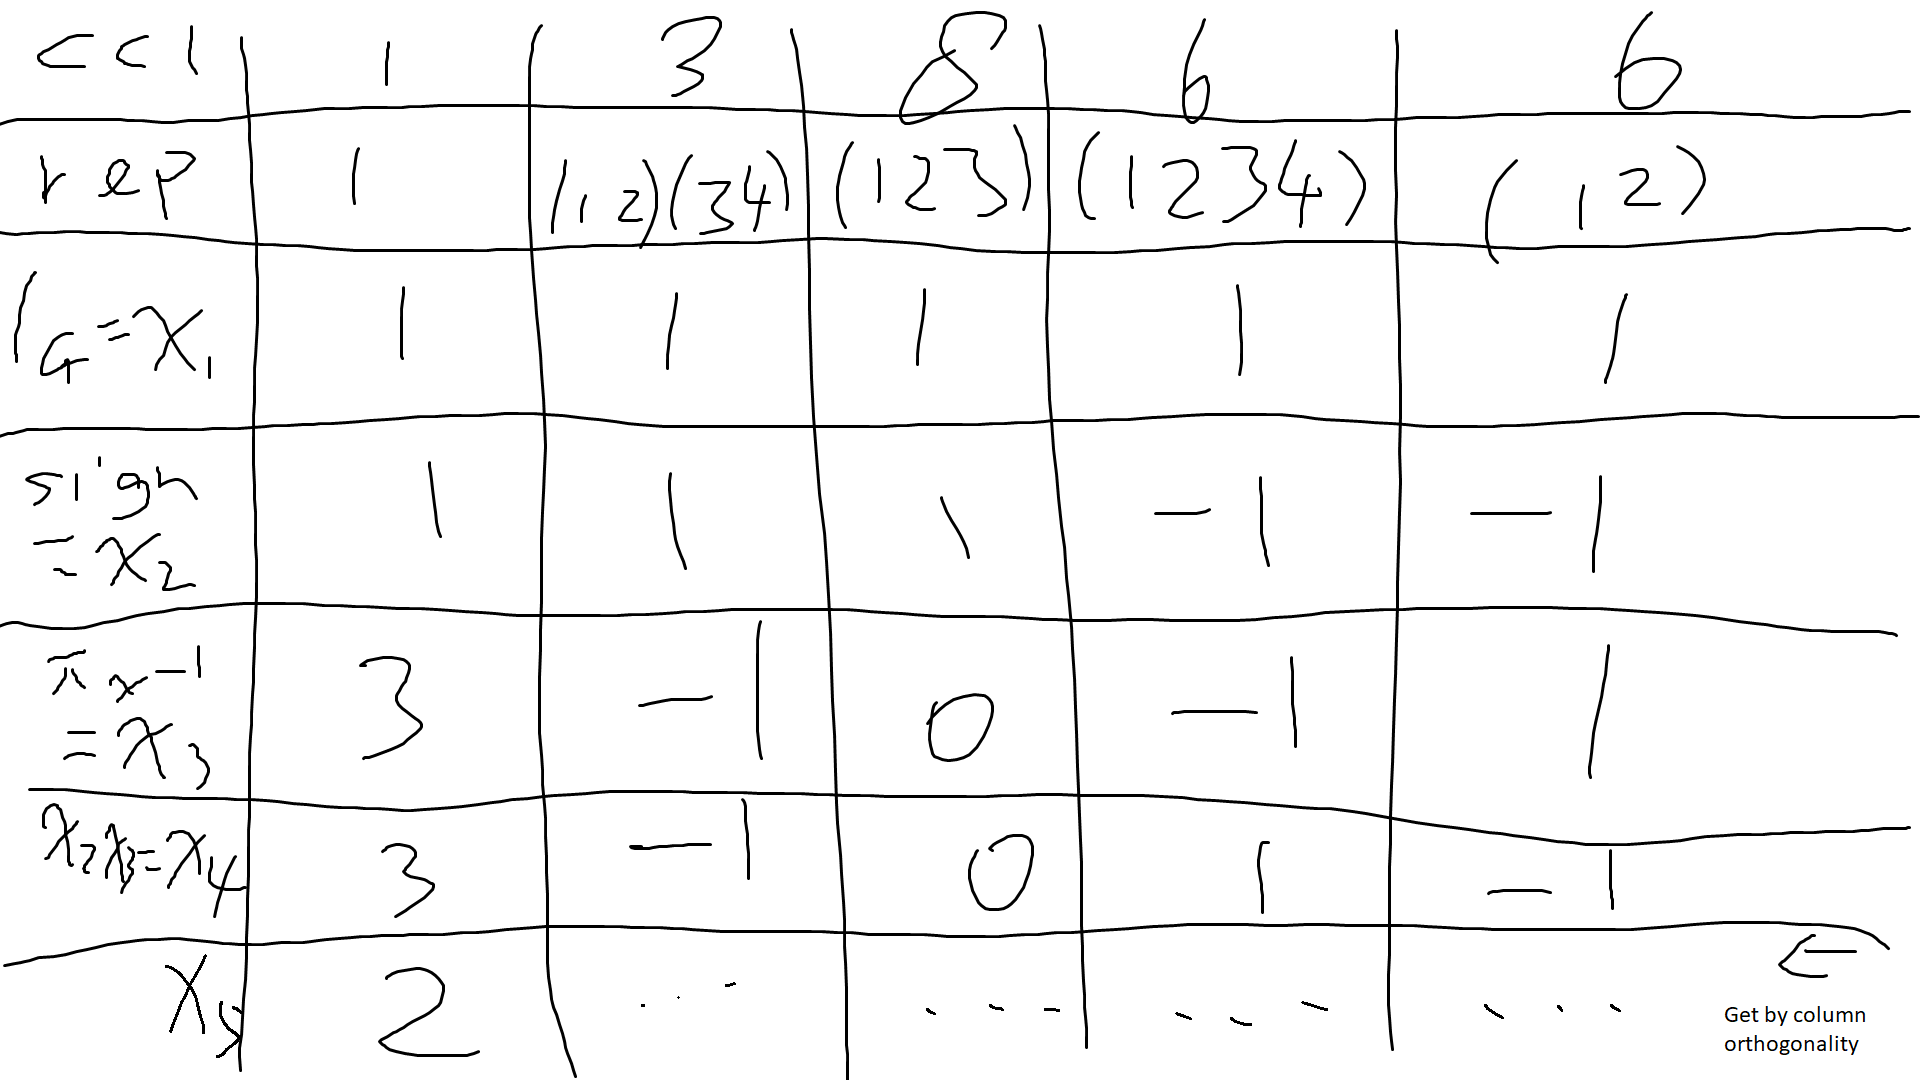 ccl 1 3 8 6 6
rep 1 (12)(34) (123) (1234) (12)
1_G=χ_1 1 1 1 1 1
sign
=χ_2 1 1 1 -1 -1
π_x-1
=χ_3 3 -1 0 -1 1
χ_2χ_3=χ_4 3 -1 0 1 -1
χ_5 2 ... ... ... ... ←
Get by column
orthogonality